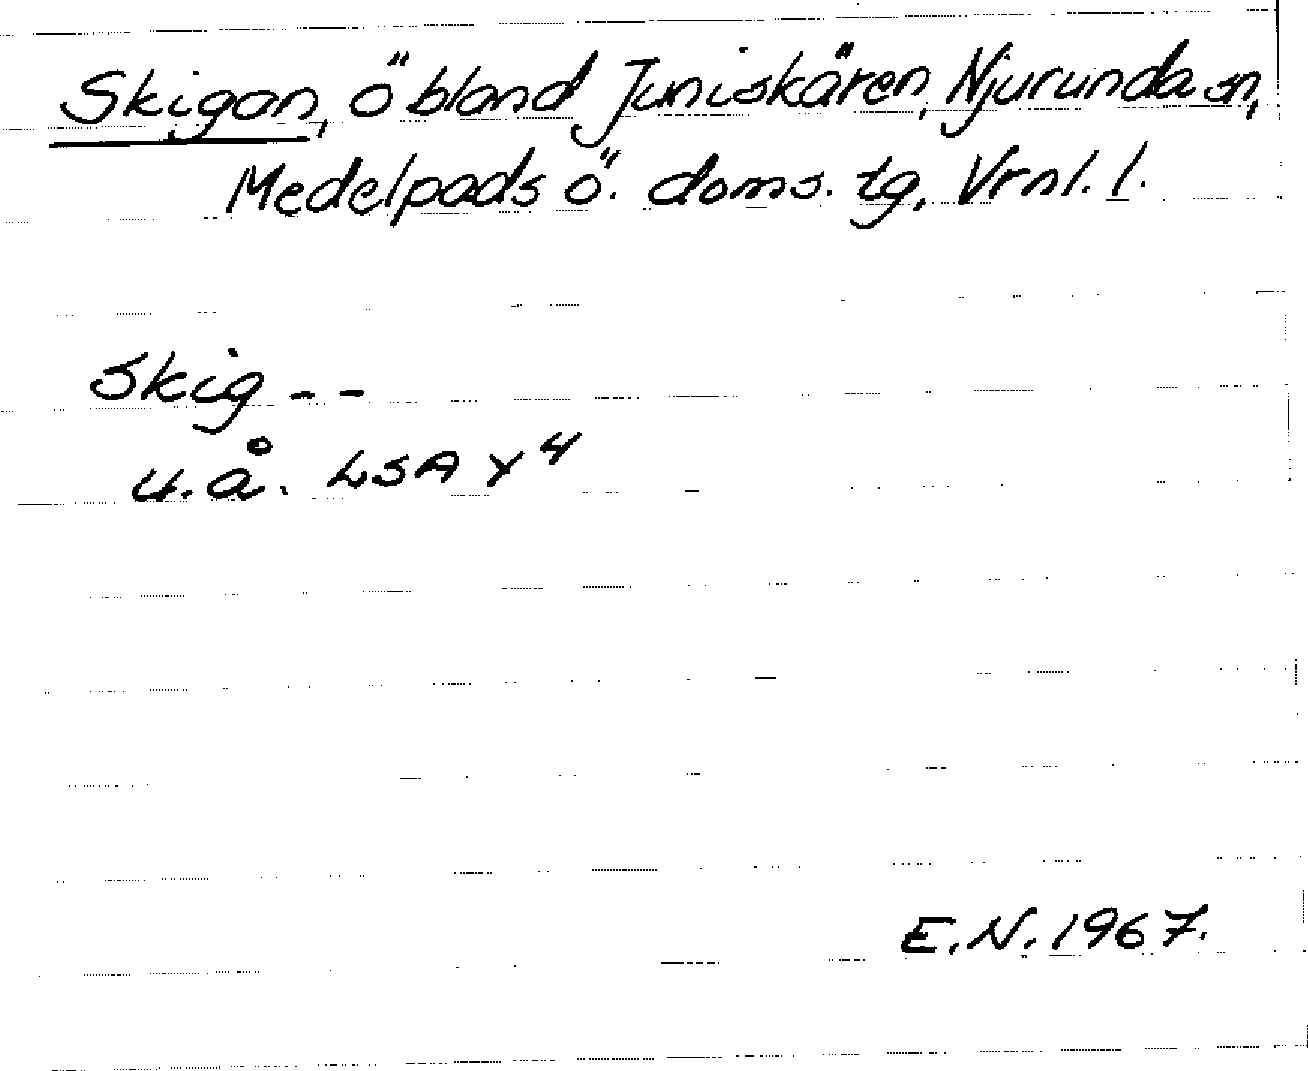 Skigan, ö bland Juniskären, Njurunda sn,
Medelpads ö. doms. tg, Vrnl. l.
Skig - -
u.å. LSA Y 4
E.N. 1967.